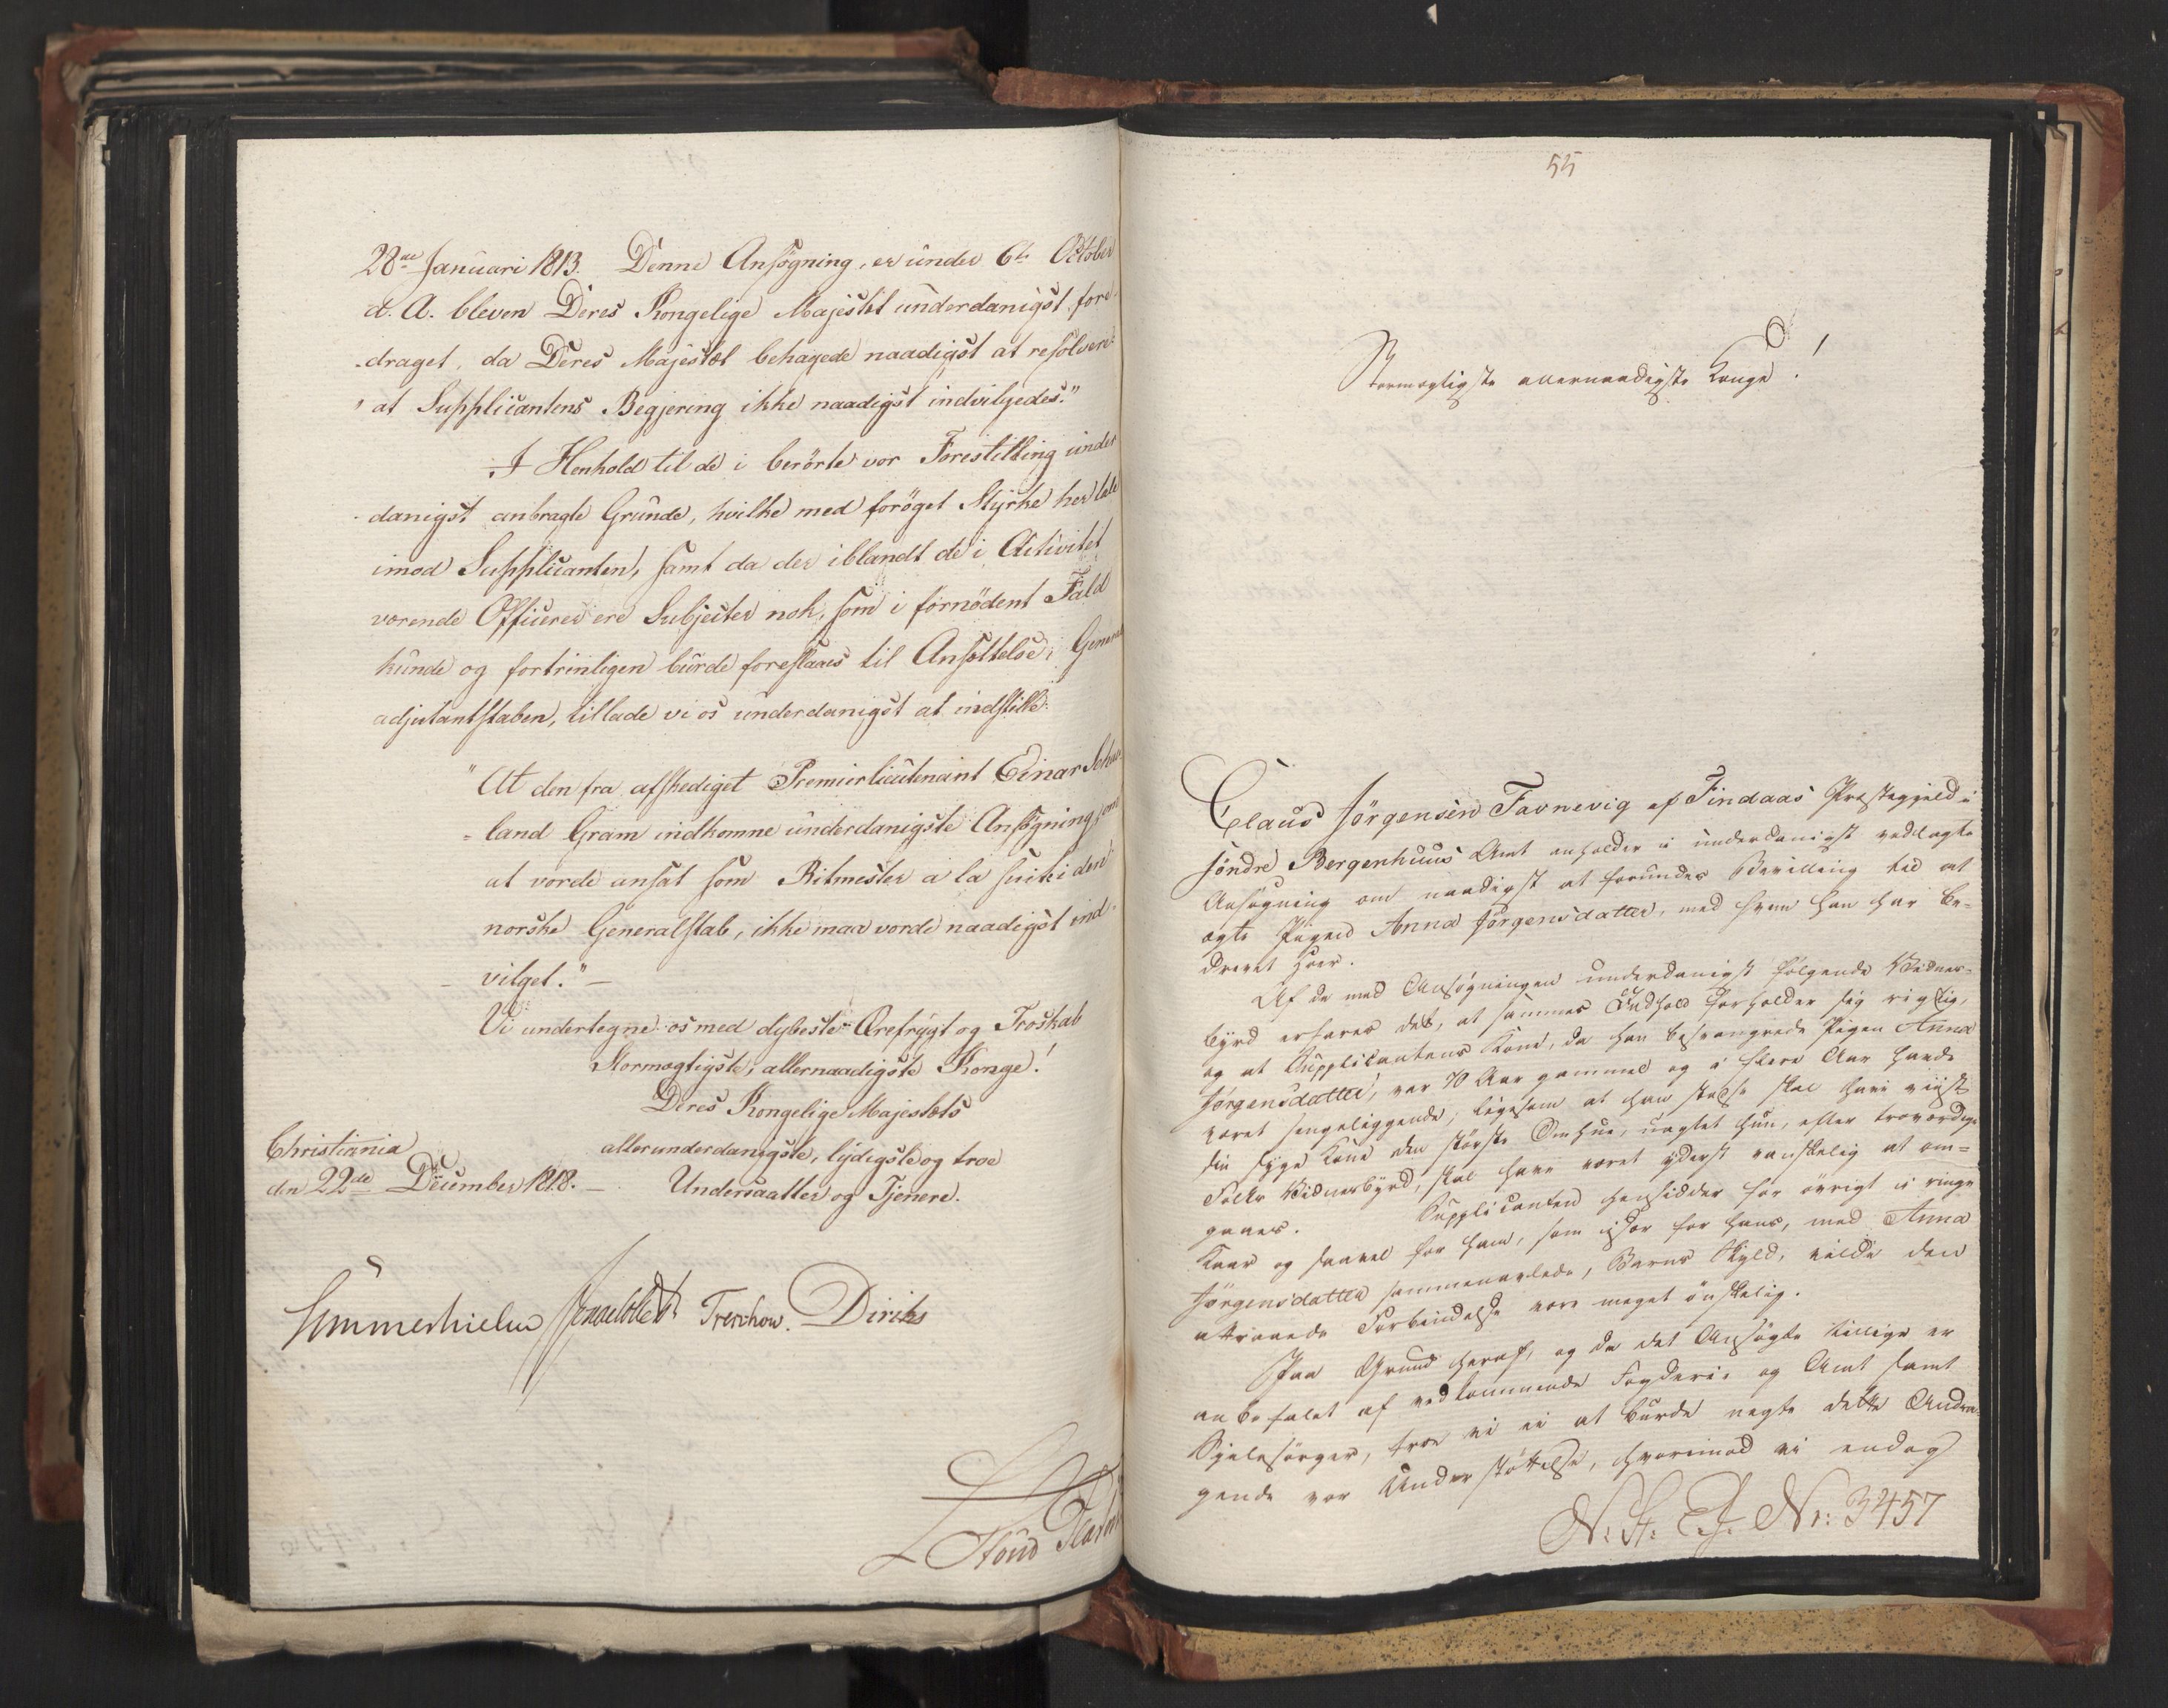 28de Januari 1813. Denne Ansøgning, er under 6te October
d. A. bleven Deres Kongelige Majestæt underdanigst fore-
-draget, da Deres Majestæt behagede naadigst at resolvere:
"at Supplicantens Begjering ikke naadigst indvilgedes."
I Henhold til de i berørte vor Forestilling under
danigst anbragte Grunde, hvilke med forøget Styrke her tale
imod Supplicanten, samt da der iblandt de i Activitet
værende Officerer ere Subjecter nok, som i fornødent Fald
kunde og fortrinligen burde foreslaaes til Ansættelse i General
adjutantstaben, tillade vi os underdanigst at indstille:
"At den fra afskediget Premierlieutenant Einar Schav-
-land Gram indkomne underdanigste Ansøgning, om
at vorde ansat som Ritmester a la suite i den
norske Generalstab, ikke maa vorde naadigst ind-
vilget."
Vi undertegne os med dybeste Ærefrygt og Troskab
Stormægtigste, allernaadigste Konge!
Deres Kongelige Majestæts
Christiania allerunderdanigste, lydigste og troe
den 22de December 1818. Undersaatter og Tjenere.
Sommerhielm Treschow. Diriks
55
Stormægtigste allernaadigste Konge!
Claus Jørgensen Favnevig af Findaas Præstegjeld i
søndre Bergenhuus Amt anholder i underdanigst vedlagte
Ansøgning om naadigst at forundes Bevilling til at
ægte Pigen Anna Jørgensdatter, med hvem han har be-
drevet Hoer.
Af de med Ansøgningen underdanigst følgende Vidnes-
byrd erfares det, at sammes Indhold forholder sig rigtig,
og at Supplicantens Kone, da han besvangrede Pigen Anna
Jørgensdatter, var 70 Aar gammel og i flere Aar havde
været sengeliggende, ligesom at han stedse skal have viist
sin syge Kone den største Omhue, uagtet hun, efter troværdige
Folks Vidnesbyrd, skal have været yderst vanskelig at om-
gaaes. Supplicanten hensidder for øvrigt i ringe
Kaar og saavel for ham, som især for hans, med Anna
Jørgensdatter sammenavlede, Barns Skyld, vilde den
attraaede Forbindelse være meget ønskelig.
Paa Grund heraf, og da det Ansøgte tillige er
anbefalet af vedkommende Fogderie og Amt samt
Sjelesørger, troe vi ei at burde negte dette Andra-
gende vor Understøttelse, hvorimod vi endog
N: St: E. J. Nr: 3457